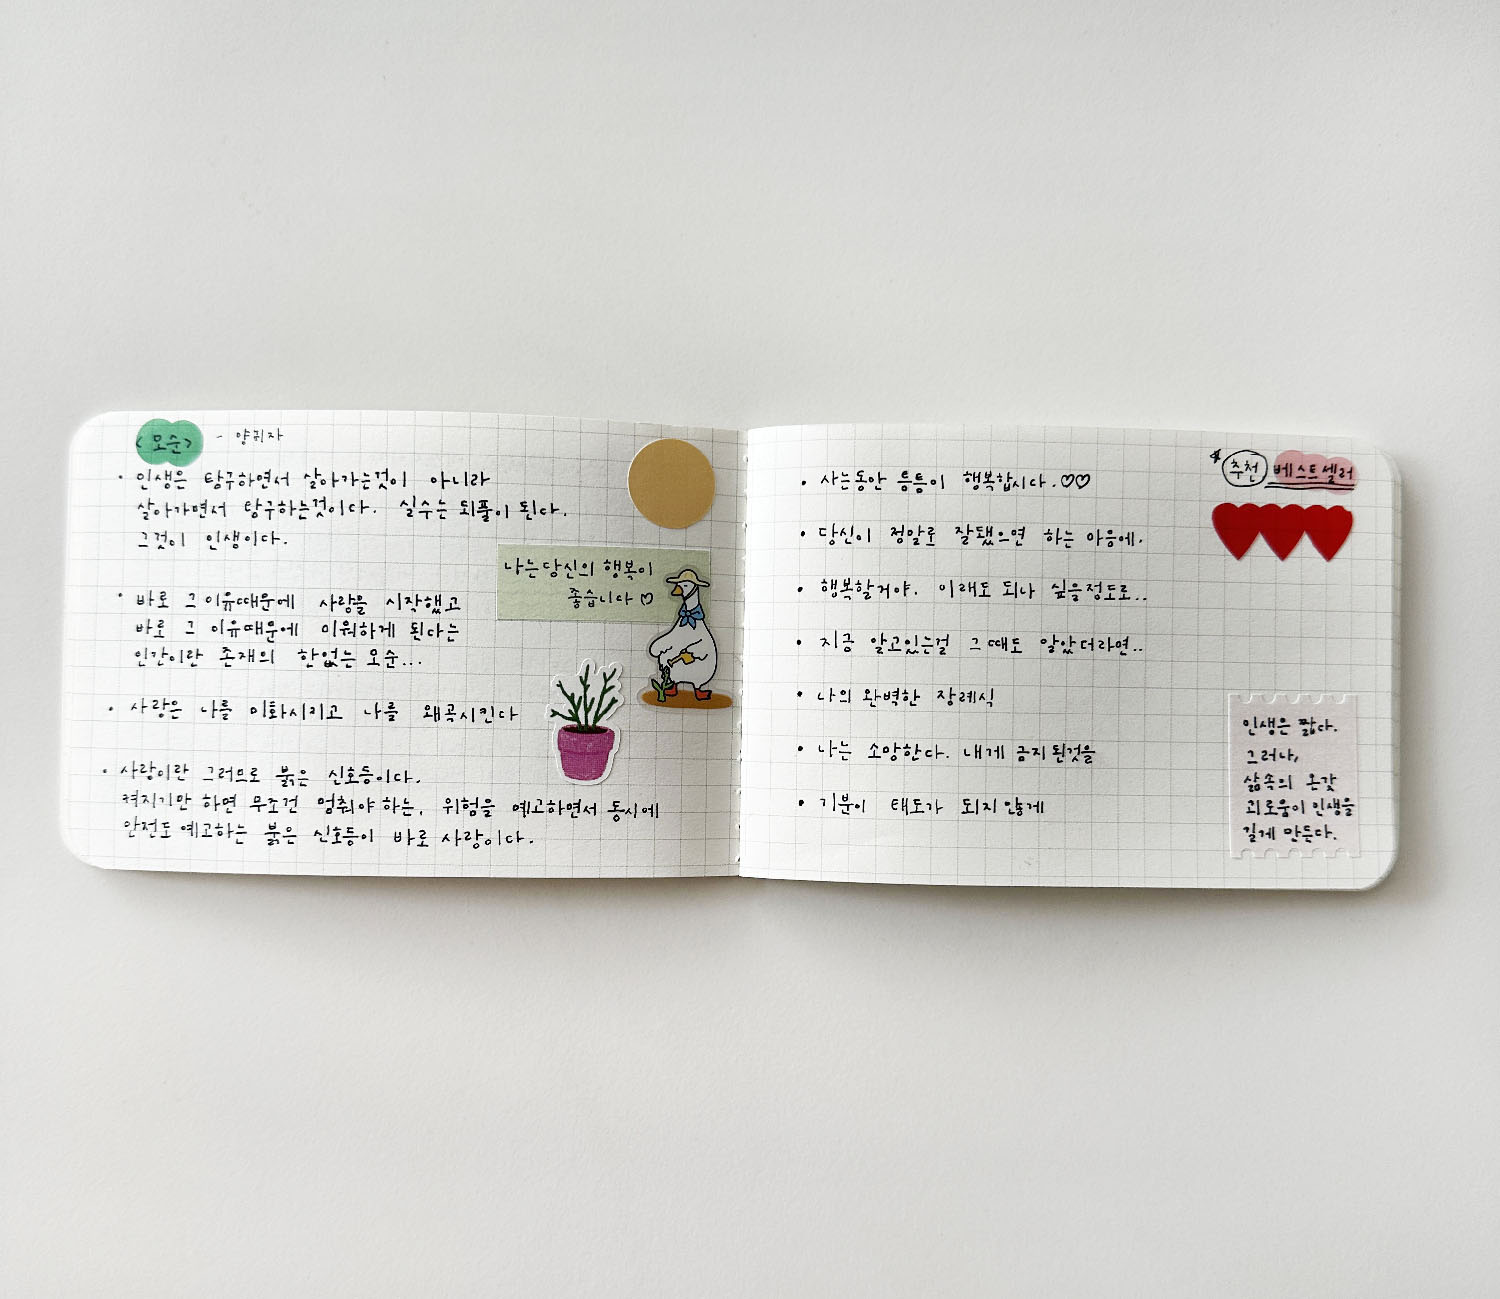 <모순> - 양귀자
• 인생은 탐구하면서 살아가는것이 아니라
살아가면서 탐구하는것이다. 실수는 되풀이 된다.
그것이 인생이다.
나는 당신의 행복이
좋습니다 ♡
• 바로 그 이유때문에 사랑을 시작했고
바로 그 이유때문에 미워하게 된다는
인간이란 존재의 한없는 모순...
• 사랑은 나를 미화시키고 나를 왜곡시킨다
• 사랑이란 그러므로 붉은 신호등이다.
켜지기만 하면 무조건 멈춰야 하는, 위험을 예고하면서 동시에
안전도 예고하는 붉은 신호등이 바로 사랑이다.
추천 베스트셀러
• 사는동안 틈틈이 행복합시다.♡♡
• 당신이 정말로 잘됐으면 하는 마음에.
• 행복할거야. 이래도 되나 싶을정도로..
• 지금 알고있는걸 그때도 알았더라면..
• 나의 완벽한 장례식
• 나는 소망한다. 내게 금지된것을
• 기분이 태도가 되지않게
인생은 짧다.
그러나,
삶속의 온갖
괴로움이 인생을
길게 만든다.